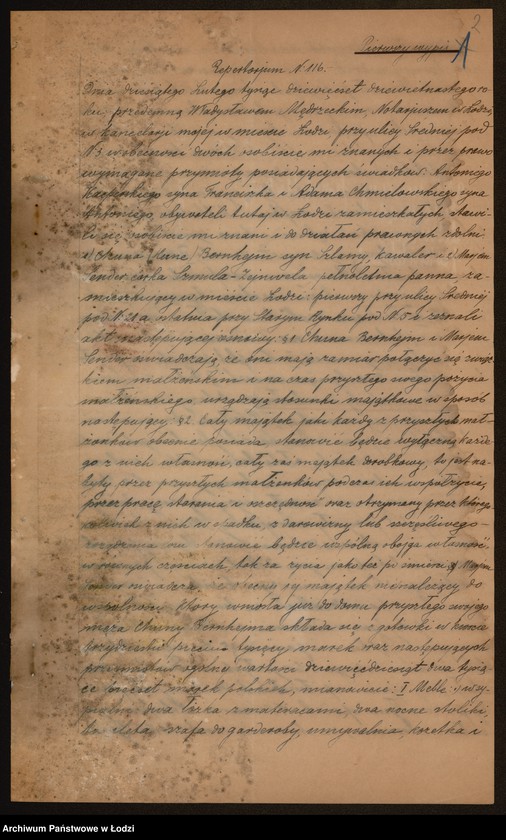 2
Pierwszy wypis
Repertorjum N. 116.
Dnia dziesiątego Lutego tysiąc dziewięćset dziewiętnastego ro-
ku, przedemną Władysławem Mędrzeckim, Notarjuszem w Łodzi,
w kancelarji mojej w mieście Łodzi przy ulicy Średniej pod
N. w obecności dwóch osobiście mi znanych i przez prawo
wymagane przymioty posiadających świadków: Antoniego
syna Franciszka i Adama Chmielowskiego syna
Antoniego, obywateli tutaj w Łodzi zamieszkałych, stawi-
li się osobiście mi znani i do działań prawnych zdolni
1/ Chuna Bernheym syn Szlamy, kawaler i 2/ Maryem
Sender córka Szmula-Zejnwela pełnoletnia panna, za-
mieszkujący w mieście Łodzi: pierwszy przy ulicy Średniej
pod N. 21 a ostatnia przy Starym Rynku pod N. 5 i zeznali
akt następującej osnowy: §1. Chuna Bernheym i Maryem
Sender oświadczają że oni mają zamiar połączyć się związ-
kiem małżeńskim i na czas przyszłego swego pożycia
małżeńskiego urządzają stosunki majątkowe w sposób
następujący: §2. Cały majątek jaki każdy z przyszłych mał-
żonków obecnie posiada stanowić będzie wyłączną każde-
go z nich własność, cały zaś majątek dorobkowy, to jest na-
byty przez przyszłych małżonków podczas ich współżycia,
przez pracę, starania i oszczędność oraz otrzymany przez którego-
kolwiek z nich w spadku, z darowizny lub szczęśliwego
zdarzenia stanowić będzie wspólną obojga własność
w równych częściach, tak za życia jako też po śmierci. §3. Maryem
Sender oświadcza, że obecny jej majątek nienależący do
wspólności, który wniosła już do domu przyszłego swojego
męża Chuny Bernheyma składa się z gotówki w kwocie
tysięcy marek oraz następujących
przedmiotów ogólnej wartości dziewięćdziesiąt dwa tysią-
ce sześćset marek polskich, mianowicie: I Meble: w sy-
pialni: dwa łóżka z materacami, dwa nocne stoliki,
toaleta, szafa do garderoby, umywalnia, kozetka i
Archiwum Państwowe w Łodzi